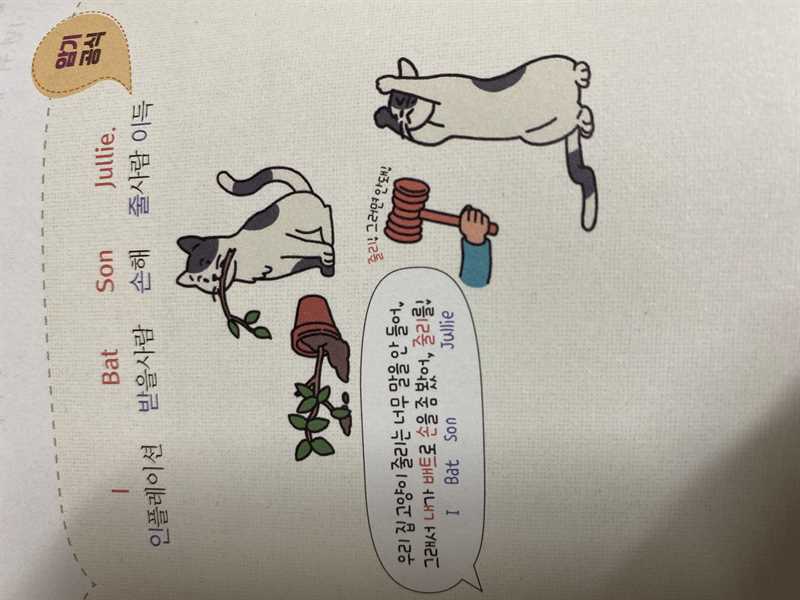 암기
공식
I Bat Son Jullie.
인플레이션 받을사람 손해 줄사람 이득
줄리! 그러면 안돼!
우리 집 고양이 줄리는 너무 말을 안 들어.
그래서 내가 배트로 손을 좀 봤어, 줄리를!
I Bat Son Jullie